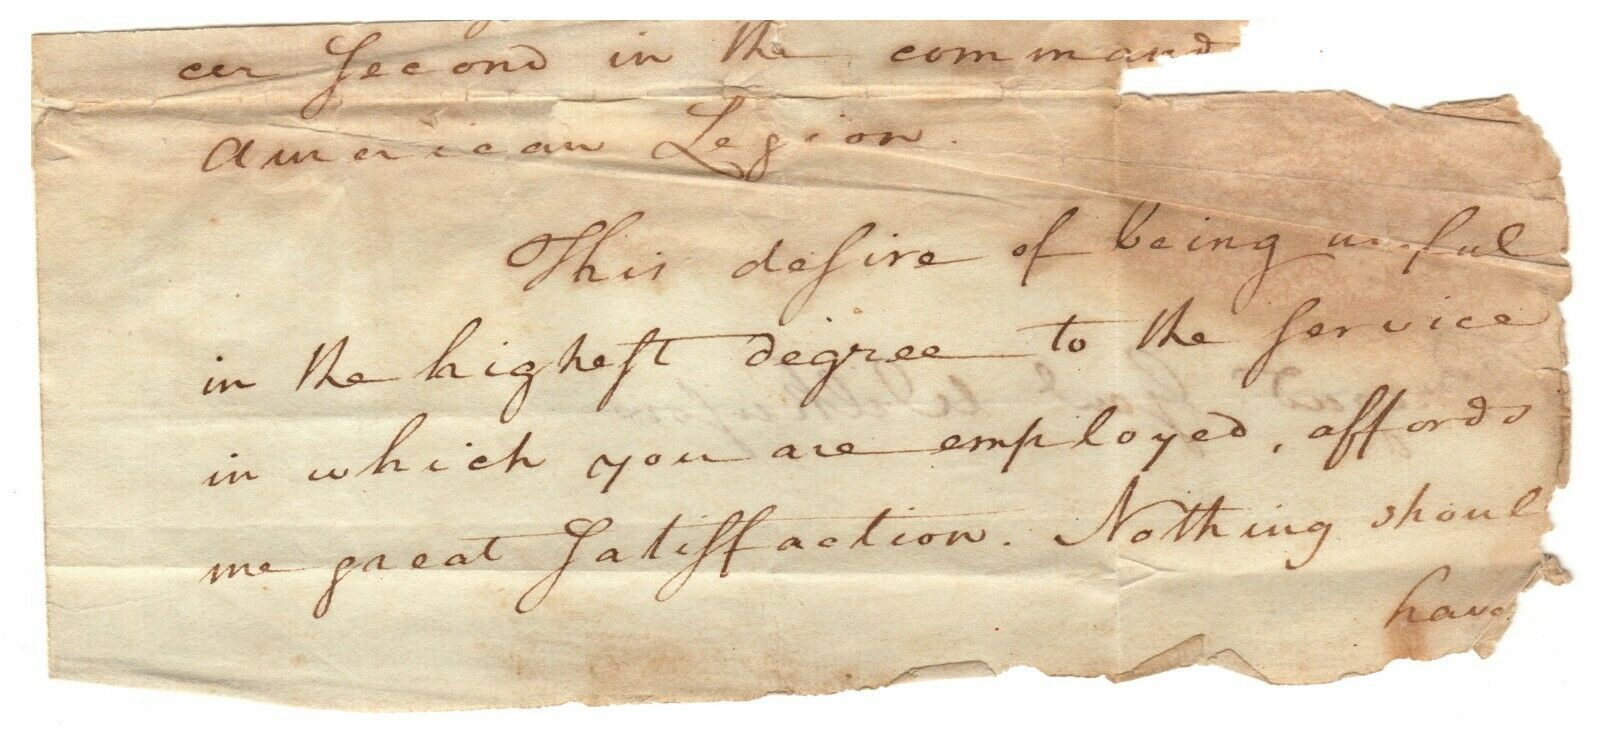 cer Second in the command
American Legion.
This desire of being useful
in the highest degree to the Service
in which you are employed, affords
me great Satisfaction. Nothing shoul
have